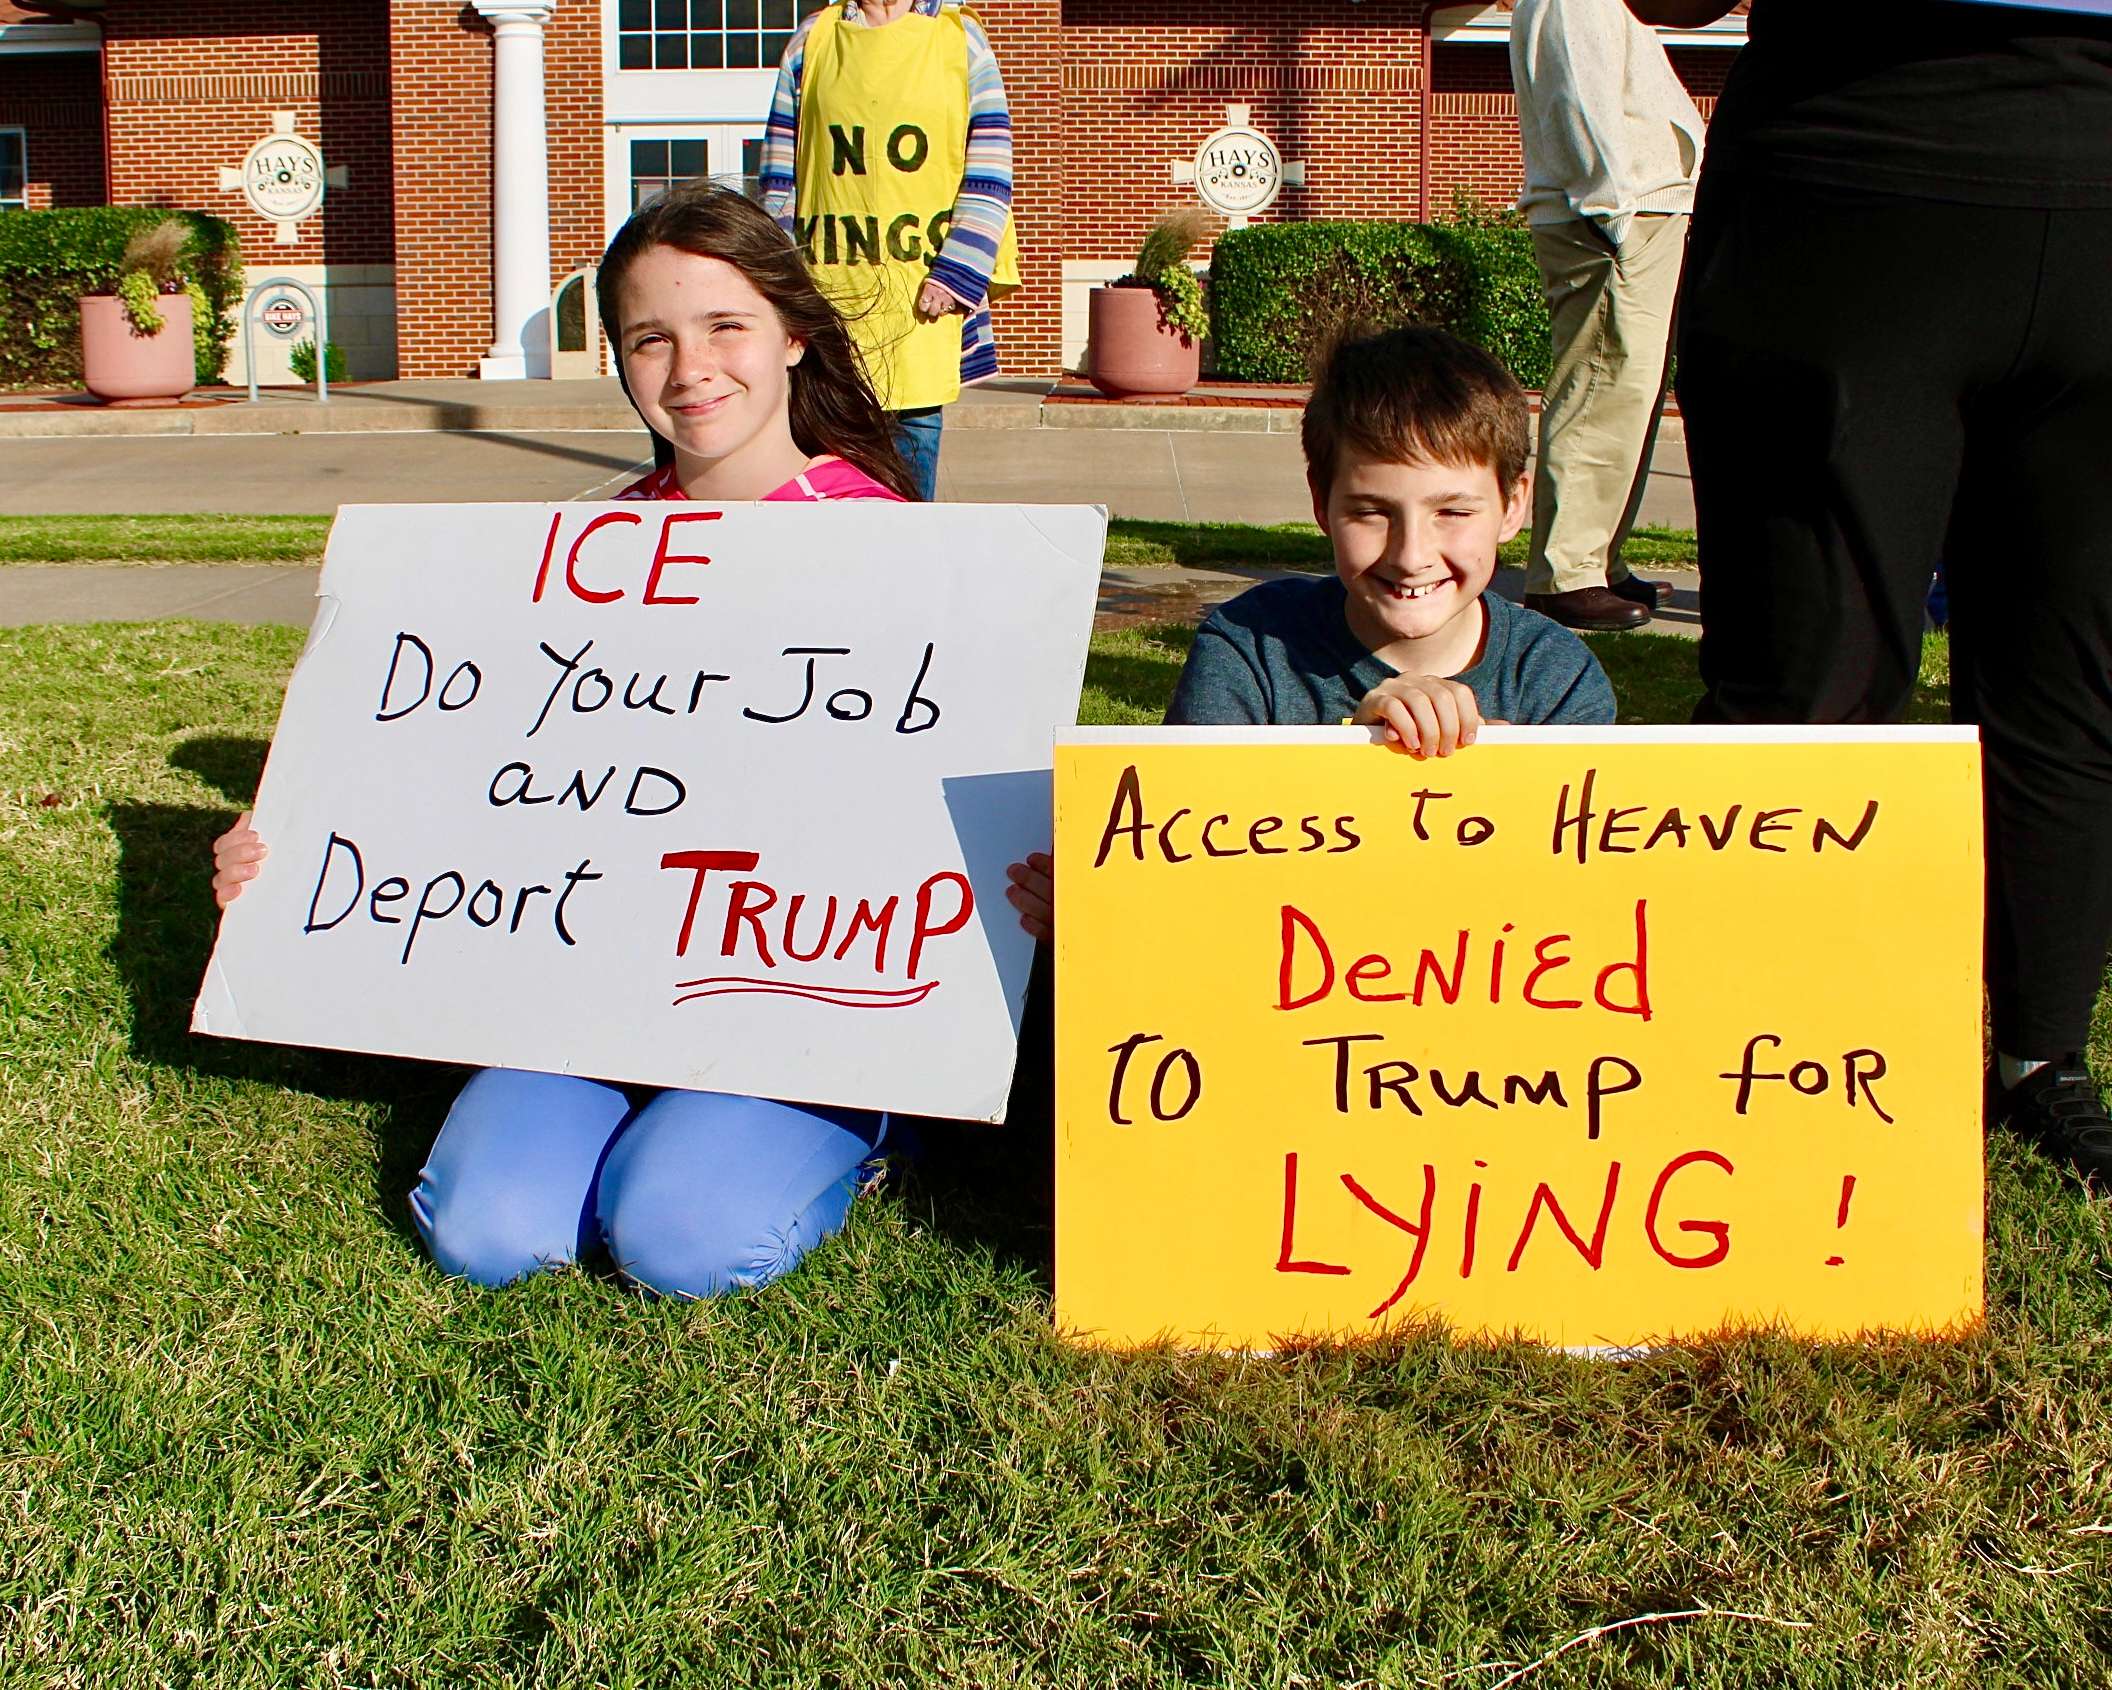 HAYS
KANSAS
BIKE HAYS
NO
KINGS
HAYS
KANSAS
ICE
Do Your Job
AND
Deport TRUMP
Access To HEAVEN
DeNiEd
TO TRUMP foR
LYiNG!